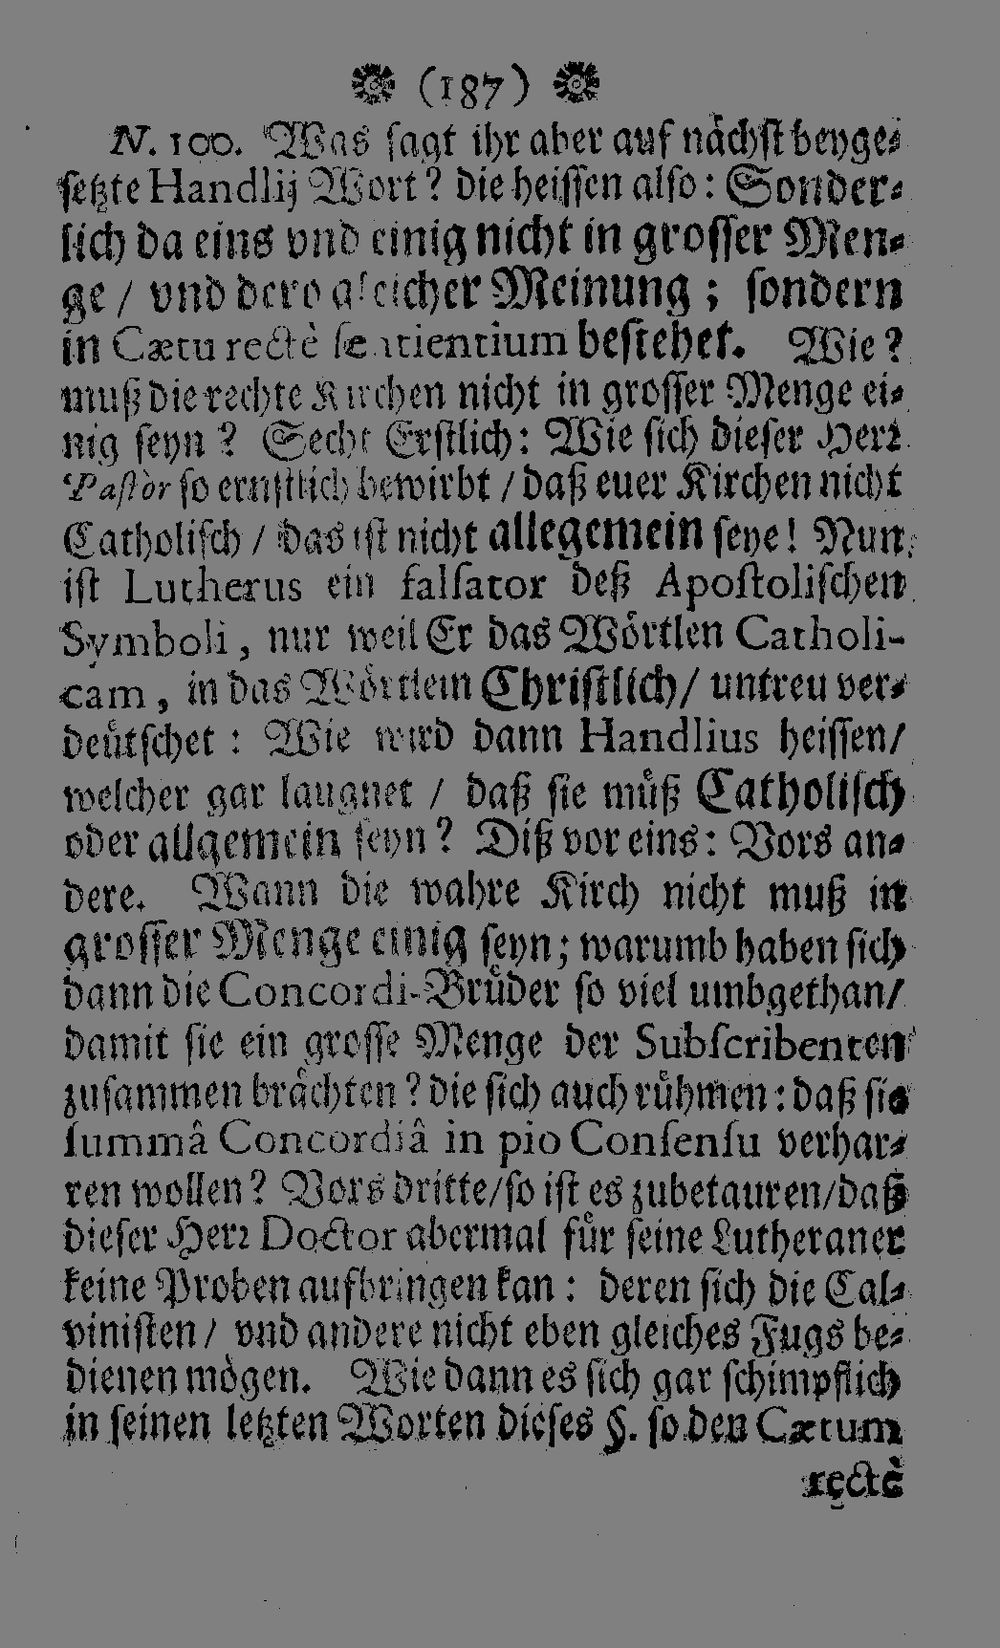 (187)
N. 100. Was ſagt ihr aber auf nächſt beyge⸗
ſetzte Handlij Wort? die heiſſen alſo: Sonder⸗
lich da eins vnd einig nicht in groſſer Men⸗
ge / vnd dero gleicher Meinung; ſondern
in Cætu rectè ſentientium beſtehet. Wie?
muß die rechte Kirchen nicht in groſſer Menge ei⸗
nig ſeyn? Secht Erſtlich: Wie ſich dieſer Herꝛ
Paſtor ſo ernſtlich bewirbt / daß euer Kirchen nicht
Catholiſch / das iſt nicht allegemein ſeye! Nun
iſt Lutherus ein falſator deß Apoſtoliſchen
Symboli, nur weil Er das Wörtlen Catholi-
cam, in das Wörtlein Chriſtlich / untreu ver⸗
deütſchet: Wie wird dann Handlius heiſſen /
welcher gar laugnet / daß ſie müß Catholiſch
oder allgemein ſeyn? Diß vor eins: Vors an⸗
dere. Wann die wahre Kirch nicht muß in
groſſer Menge einig ſeyn; warumb haben ſich
dann die Concordi-Brüder ſo viel umbgethan /
damit ſie ein groſſe Menge der Subſcribenten
zuſammen brächten? die ſich auch rühmen: daß ſie
ſummâ Concordiâ in pio Conſenſu verhar⸗
ren wollen? Vors dritte / ſo iſt es zubetauren / daß
dieſer Herꝛ Doctor abermal für ſeine Lutheraner
keine Proben aufbringen kan: deren ſich die Cal⸗
viniſten / vnd andere nicht eben gleiches Fugs be⸗
dienen mögen. Wie dann es ſich gar ſchimpflich
in ſeinen letzten Worten dieſes §. ſo den Cætum
rectè